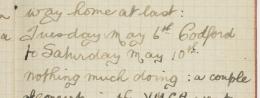 way home at last:
Tuesday May 6th Codford
to Saturday May 10th.
nothing much doing: a couple
the YMCA